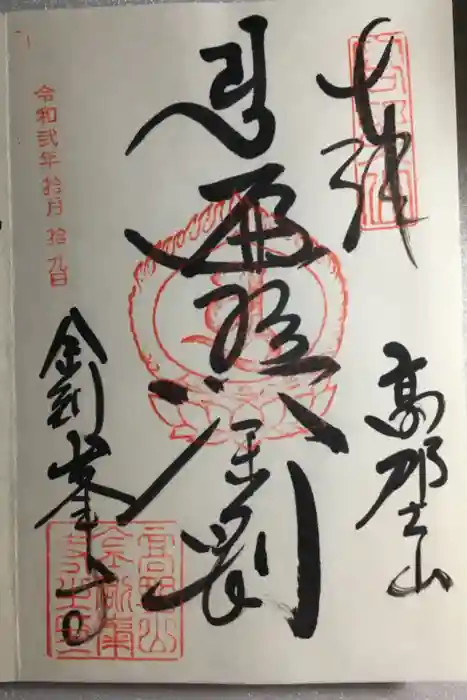 奉拝
高野山
遍照金剛
金剛峯寺
令和弐年拾月拾九日
高野山
金剛峯
寺之印